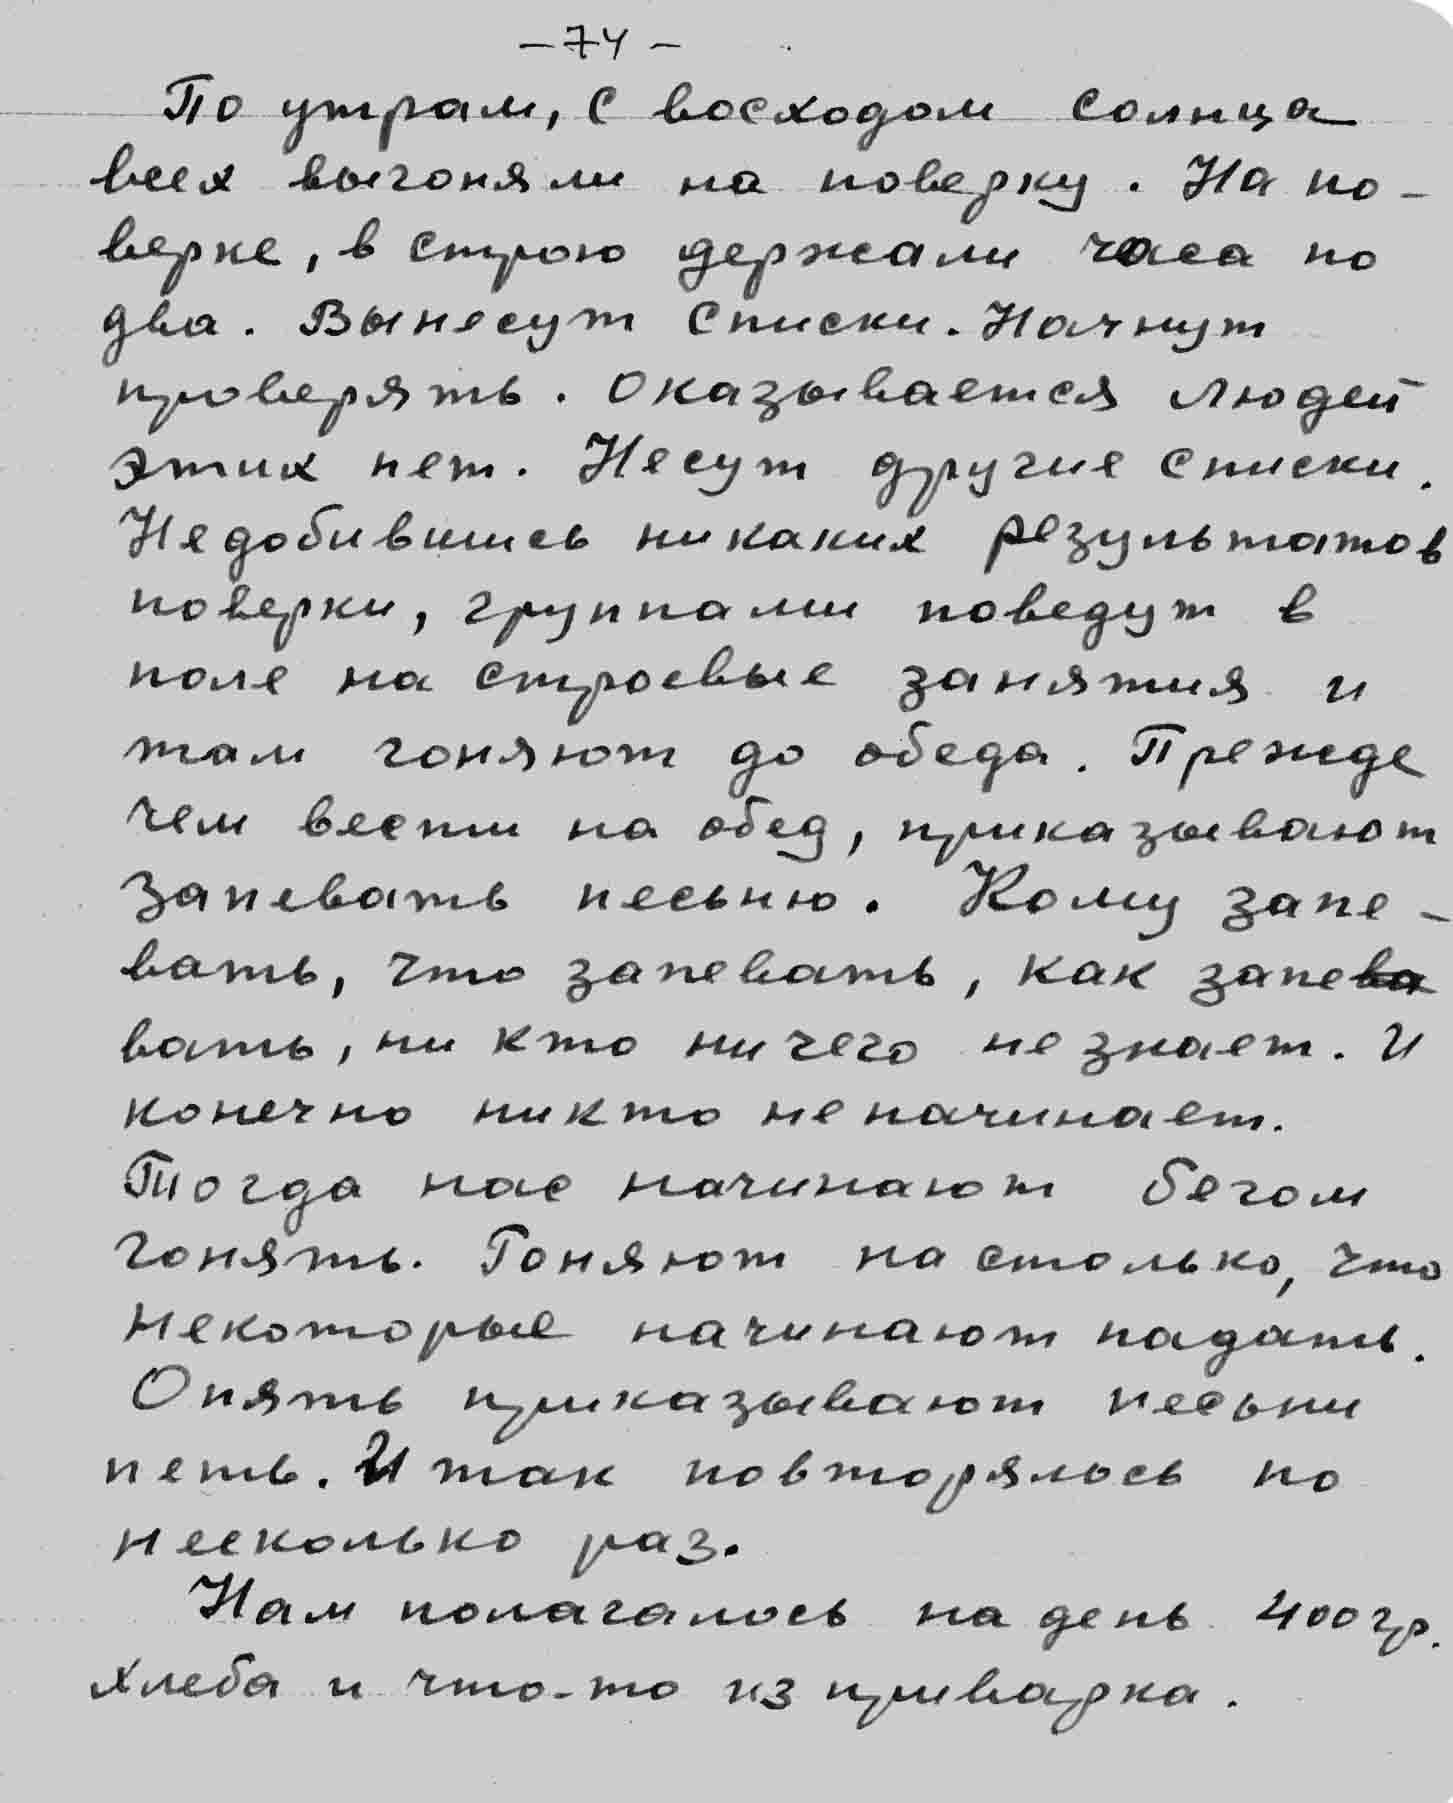 – 74 –
По утрам, с восходом солнца
всех выгоняли на поверку. На по-
верке, в строю держали часа по
два. Вынесут списки. Начнут
проверять. Оказывается людей
этих нет. Несут другие списки.
Недобившись никаких результатов
поверки, группами поведут в
поле на строевые занятия и
там гоняют до обеда. Прежде
чем вести на обед, приказывают
запевать песьню. Кому запе-
вать, что запевать, как запева
вать, ни кто ни чего не знает. И
конечно никто не начинает.
Тогда нас начинают бегом
гонять. Гоняют на столько, что
некоторые начинают падать.
Опять приказывают песьни
петь. И так повторялось по
несколько раз.
Нам полагалось на день 400 гр.
хлеба и что-то из приварка.